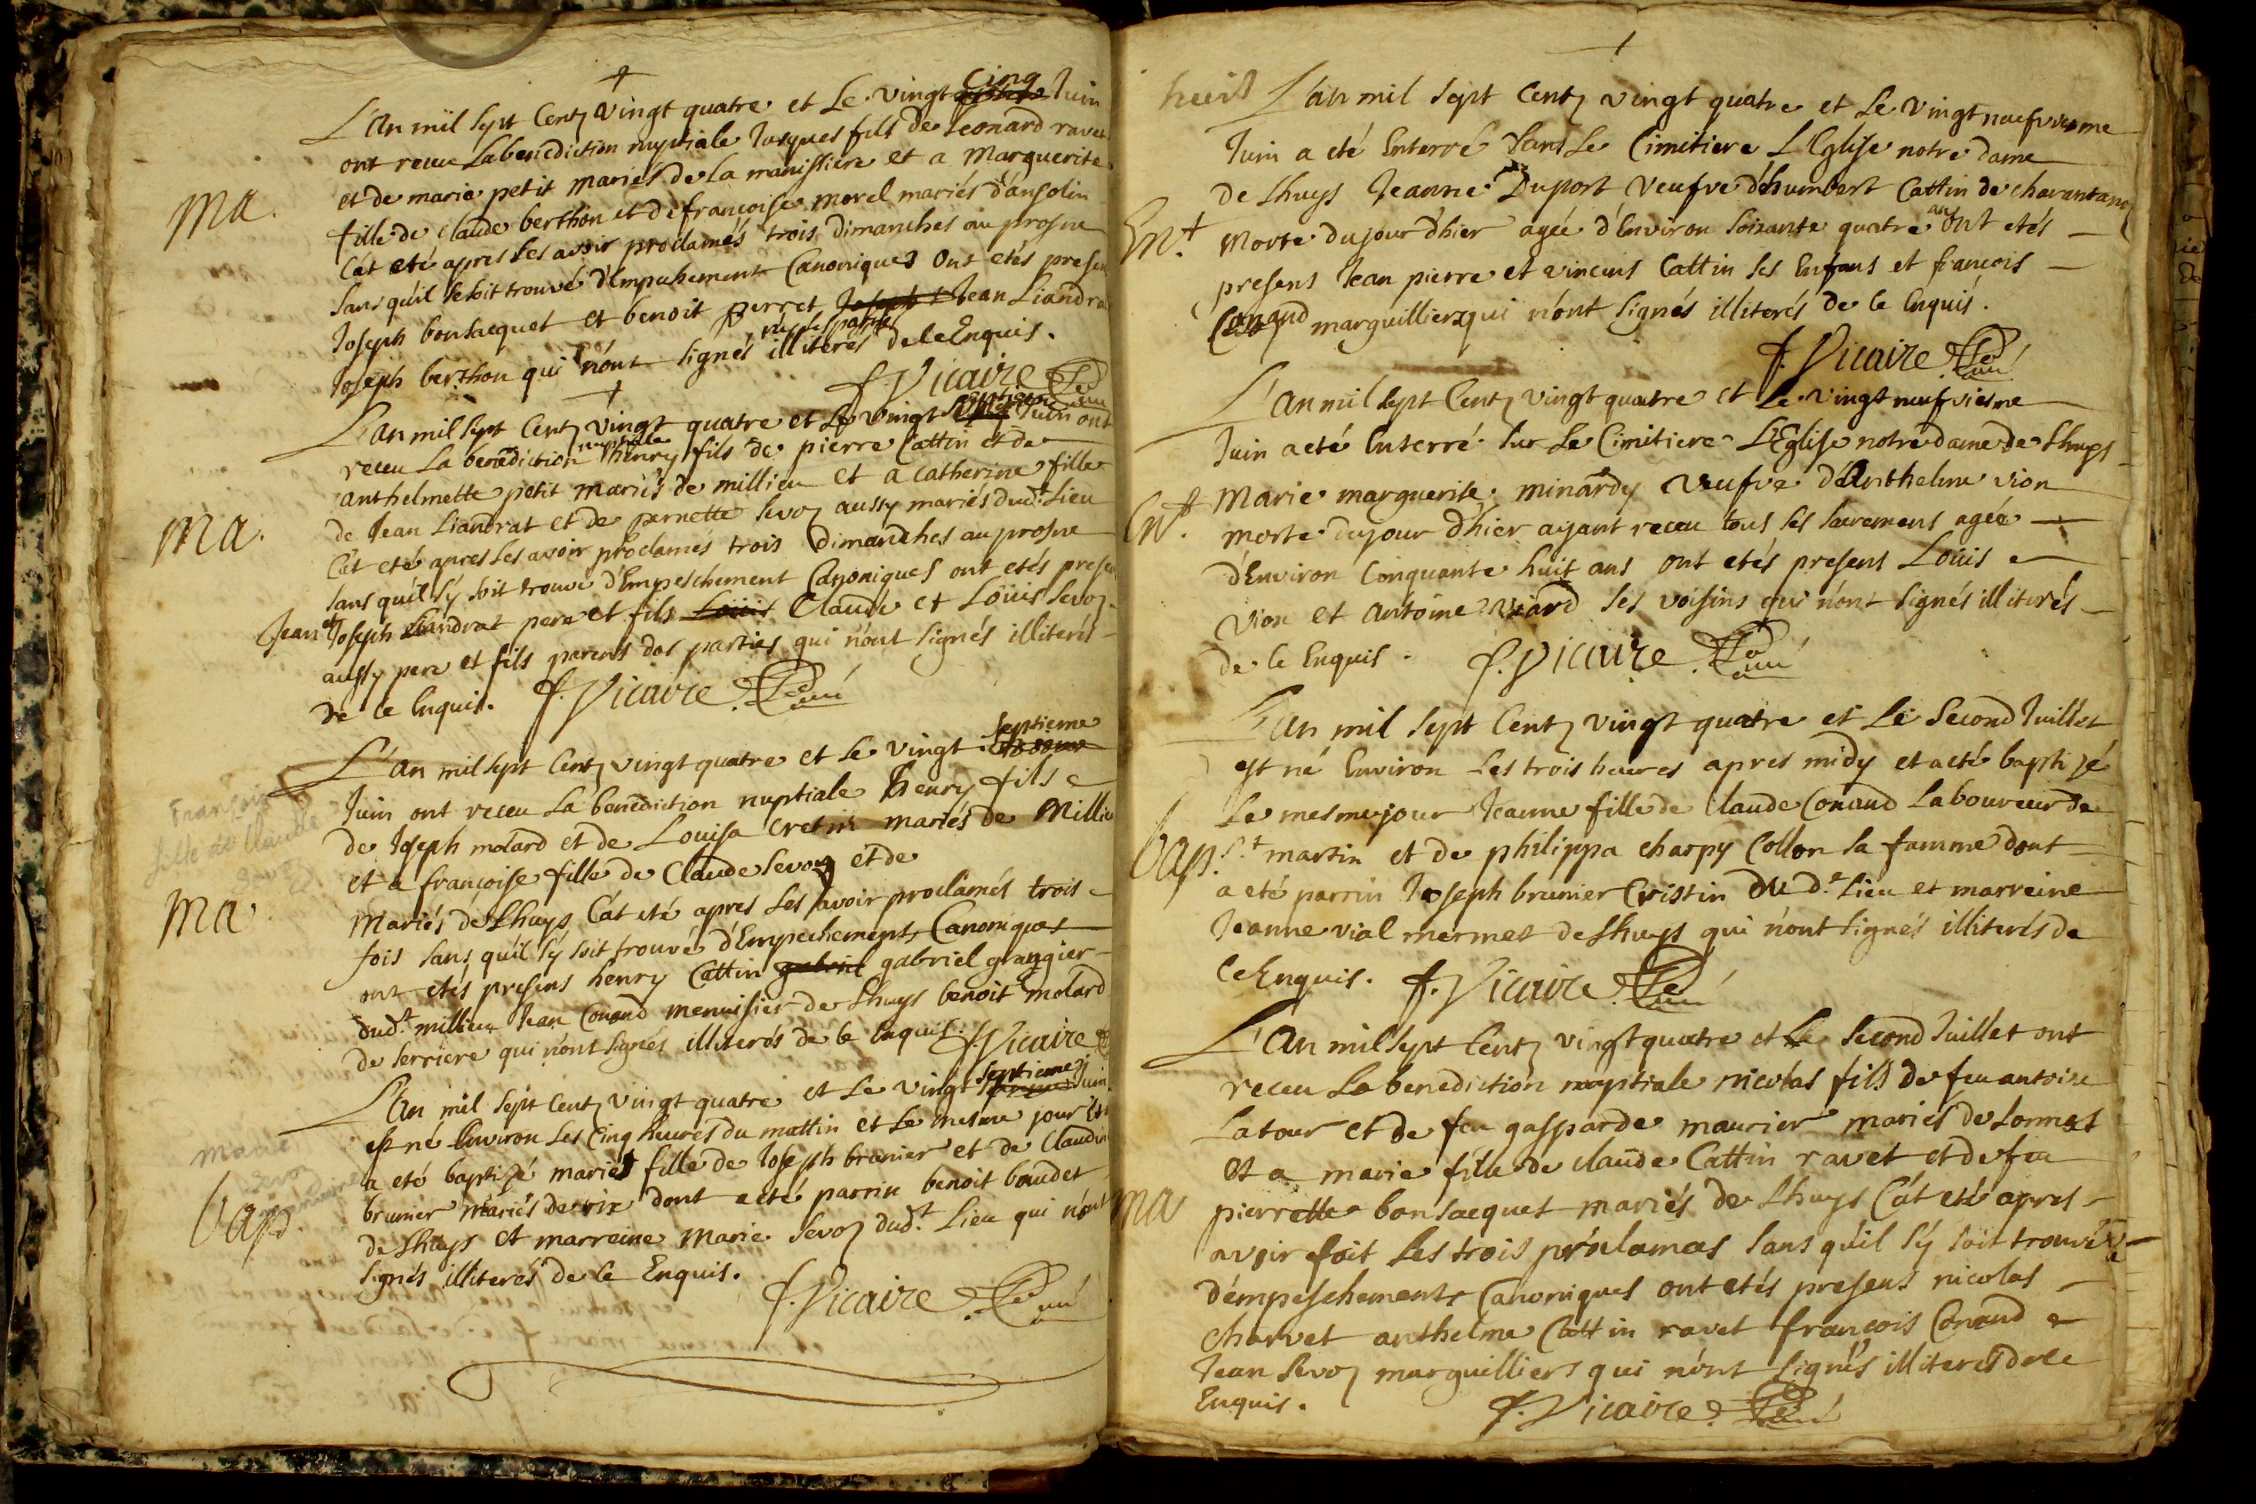 L'an mil sept Centz vingt quatre et Le vingt cinq Juin
ont receu La benediction nuptiale Jacques fils de Leonard ravet
et de marie petit mariés de la manissiere et a Marguerite
Ma.
fille de claude berthon et de françoise morel mariés d'ansolin
C'at eté apres les avoir proclamés trois dimanches au prosne
sans qu'il se soit trouvé d'Empechement Canoniques ont etés presens
Joseph bonsacquet et benoit perret Joseph Jean Liandrat
Joseph berthon qui n'ont signés ny les parties illiterés de ce Enquis.
f. Vicaire
L'an mil sept Centz vingt quatre et Le vingt septieme Juin ont
receu La benediction nuptiale henry fils de pierre Cattin et de
anthelmette petit mariés de millieu et a catherine fille
Ma.
de Jean Liandrat et de pernette Sevoz aussy mariés dud.t Lieu
C'at eté apres les avoir proclamés trois Dimanches au prosne
sans qu'il s'y soit trouvé d'Empeschement Canoniques ont etés presens
Jean et Joseph Liandrat pere et fils Loüis Claude et Loüis Sevoz
aussy pere et fils parens des parties qui n'ont signés illiterés
de ce Enquis. f. Vicaire
L'an mil sept Centz vingt quatre et Le vingt septieme
Juin ont receu La benediction nuptiale henry fils
françoise
fille de Claude
Sevoz
de Joseph molard et de Louise Cretin mariés de Millieu
et a françoise fille de Claude Sevoz et de
Ma
Mariés de Lhuys C'at eté apres Les avoir proclamés trois
fois sans qu'il s'y soit trouvé d'Empechements Canoniques
ont etés presens henry Cattin gabriel gabriel grangier
dud.t millieu Jean Conand menuisier de Lhuys benoit molard
de Serriere qui n'ont signés illiterés de ce Enquis. f. Vicaire
L'an mil sept Centz vingt quatre et Le vingt septieme Juin
est né Environ Les Cinq heures du mattin et Le mesme jour
Marie
a eté baptizé marie fille de Joseph brunier et de Claudine
bap.
brunier mariés de rix dont a eté parrin benoit baudet
de Lhuys et marreine Marie Sevoz dud.t Lieu qui n'ont
signés illiterés de ce Enquis.
f. Vicaire
huit
L'an mil sept Centz vingt quatre et Le vingt neufviesme
Juin a eté Enterré dans Le Cimitiere L'Eglise notre dame
de Lhuys Jeanne Duport veufve d'humbert Cattin de charantano
En.t
Morte du jour d'hier agée d'Environ soixante quatre ans ont etés
presens Jean pierre et vincens Cattin ses Enfans et françois
Conand marguilliers qui n'ont signés illiterés de ce Enquis.
f. Vicaire
L'an mil sept Centz vingt quatre et Le vingt neufviesme
Juin a eté Enterré sur Le Cimitiere L'Eglise notre dame de Lhuys
En.t
Marie marguerite minardy veufve d'Anthelme vion
morte du jour d'hier ayant receu tous ses sacremens agée
d'Environ Cinquante huit ans ont etés presens Loüis
vion et antoine viard ses voisins qui n'ont signés illiterés
de ce Enquis. f. Vicaire
L'an mil sept Centz vingt quatre et Le second Juillet
est né Environ Les trois heures apres midy et a eté baptizé
Le mesme jour Jeanne fille de Claude Conand Laboureur de
bap.
S.t martin et de philippa charpy Collon sa famme dont
a eté parrin Joseph brunier Cristin du d.t Lieu et marreine
Jeanne vial mermet de Lhuys qui n'ont signés illiterés de
ce Enquis. f. Vicaire
L'an mil sept Centz vingt quatre et Le second Juillet ont
receu La benediction nuptiale nicolas fils de feu antoine
Latour et de feu gasparde maurier mariés de Lormet
et a marie fille de claude Cattin ravet et de feu
Ma
pierrette bonsacquet mariés de Lhuys C'at eté apres
avoir fait Les trois proclamas sans qu'il s'y soit trouvé
d'empeschements Canoniques ont etés presens nicolas
charvet anthelme Cattin ravet françois Conand
Jean Sevoz marguilliers qui n'ont signés illiterés de ce
Enquis. f. Vicaire